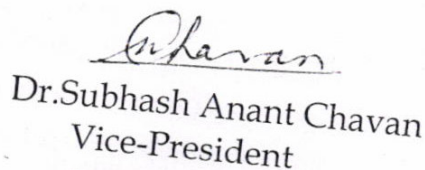 Chavan
Dr.Subhash Anant Chavan
Vice-President